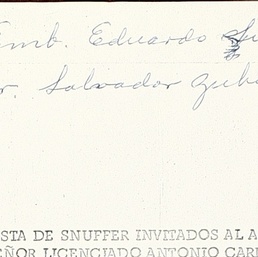 Emb. Eduardo
r. Salvador Zub
STA DE SNUFFER INVITADOS AL A
EÑOR LICENCIADO ANTONIO CARR